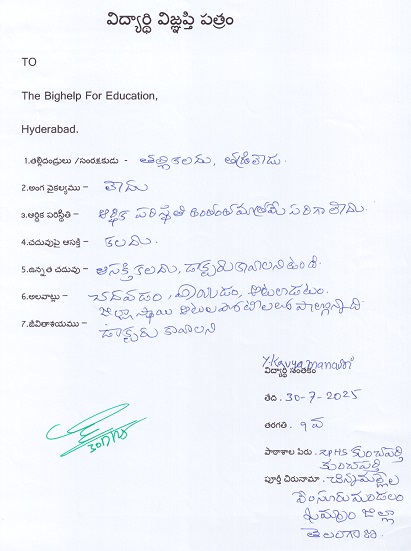 విద్యార్థి విజ్ఞప్తి పత్రం
TO
The Bighelp For Education,
Hyderabad.
1.తల్లిదండ్రులు /సంరక్షకుడు - తల్లి కలదు, తండ్రి లేడు.
2.అంగ వైకల్యము - లేదు
3.ఆర్థిక పరిస్థితి - ఆర్థిక పరిస్థితి అంతంత మాత్రమే సరిగా లేదు.
4.చదువుపై ఆసక్తి - కలదు.
5.ఉన్నత చదువు - ఆసక్తి కలదు, డాక్టరు కావాలని ఉంది.
6.అలవాట్లు - చదవడం, వ్రాయడం, ఆటలాడటం.
జిల్లా స్థాయి ఆటల పోటీలలో పాల్గొన్నది
7.జీవితాశయము - డాక్టరు కావాలని
Y. Kavya manasri
విద్యార్థి సంతకం
తేది . 30-7-2025
తరగతి . 9 వ
పాఠశాల పేరు . ZPHS కుంచపర్తి
కుంచపర్తి
పూర్తి చిరునామా .
వేంసూరు మండలం
ఖమ్మం జిల్లా
తెలంగాణ.